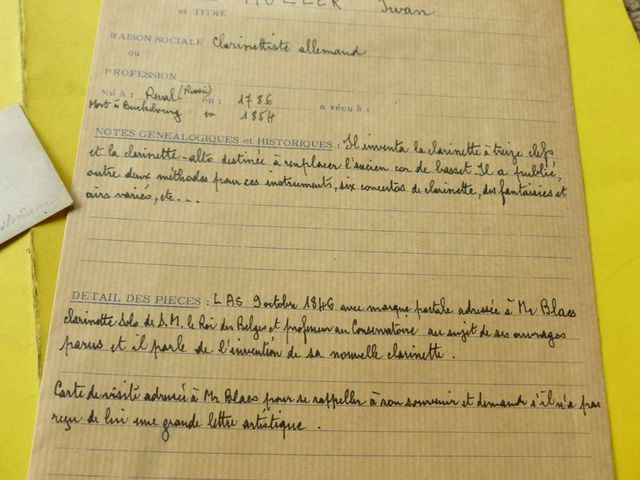 MULLER Iwan
et TITRE
RAISON SOCIALE Clarinettiste allemand
ou
PROFESSION
Né à : Reval (Russie) en : 1786 a vécu à :
Mort à Buckebourg en 1854
NOTES GÉNÉALOGIQUES et HISTORIQUES : Il inventa la clarinette à treize clefs
et la clarinette-alto destinée à remplacer l'ancien cor de basset. Il a publié,
outre deux méthodes pour ces instruments, six concertos de clarinette, des fantaisies et
airs variés, etc...
DETAIL DES PIECES : LAS 9 octobre 1846 avec marque postale adressée à Mr Blaes
clarinette Solo de S.M. le Roi des Belges et professeur au Conservatoire au sujet de ses ouvrages
parus et il parle de l'invention de sa nouvelle clarinette.
Carte de visite adressée à Mr Blaes pour se rappeller à son souvenir et demande s'il n'a pas
reçu de lui une grande lettre artistique.